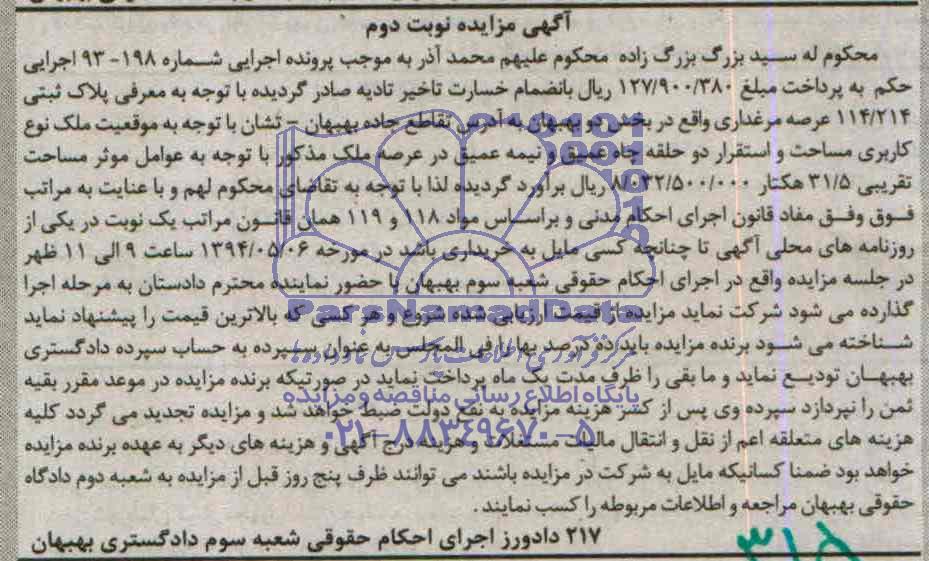 آگهی مزایده نوبت دوم
محکوم له سید بزرگ بزرگ زاده محکوم علیهم محمد آذر به موجب پرونده اجرایی شماره ۱۹۸-۹۳ اجرایی
حکم به پرداخت مبلغ ۱۲۷/۹۰۰/۳۸۰ ریال بانضمام خسارت تاخیر تادیه صادر گردیده با توجه به معرفی پلاک ثبتی
۱۱۴/۲۱۴ عرصه مرغداری واقع در بخش دو بهبهان به آدرس تقاطع جاده بهبهان – تشان با توجه به موقعیت ملک نوع
کاربری مساحت و استقرار دو حلقه چاه عمیق و نیمه عمیق در عرصه ملک مذکور با توجه به عوامل موثر مساحت
تقریبی ۳۱/۵ هکتار ۸/۰۳۲/۵۰۰/۰۰۰ ریال برآورد گردیده لذا با توجه به تقاضای محکوم لهم و با عنایت به مراتب
فوق وفق مفاد قانون اجرای احکام مدنی و براساس مواد ۱۱۸ و ۱۱۹ همان قانون مراتب یک نوبت در یکی از
روزنامه های محلی آگهی تا چنانچه کسی مایل به خریداری باشد در مورخه ۱۳۹۴/۰۵/۰۶ ساعت ۹ الی ۱۱ ظهر
در جلسه مزایده واقع در اجرای احکام حقوقی شعبه سوم بهبهان با حضور نماینده محترم دادستان به مرحله اجرا
گذارده می شود شرکت نماید مزایده از قیمت ارزیابی شده شروع و هر کسی که بالاترین قیمت را پیشنهاد نماید
شناخته می شود برنده مزایده باید ده درصد بها را فی المجلس به عنوان سپرده به حساب سپرده دادگستری
بهبهان تودیع نماید و ما بقی را ظرف مدت یک ماه پرداخت نماید در صورتیکه برنده مزایده در موعد مقرر بقیه
ثمن را نپردازد سپرده وی پس از کسر هزینه مزایده به نفع دولت ضبط خواهد شد و مزایده تجدید می گردد کلیه
هزینه های متعلقه اعم از نقل و انتقال مالیات مستغلات و هزینه درج آگهی و هزینه های دیگر به عهده برنده مزایده
خواهد بود ضمنا کسانیکه مایل به شرکت در مزایده باشند می توانند ظرف پنج روز قبل از مزایده به شعبه دوم دادگاه
حقوقی بهبهان مراجعه و اطلاعات مربوطه را کسب نمایند .
۲۱۷ دادورز اجرای احکام حقوقی شعبه سوم دادگستری بهبهان
ParsNamadData
پایگاه اطلاع رسانی مناقصه و مزایده
۰۲۱-۸۸۳۴۹۶۷۰-۵